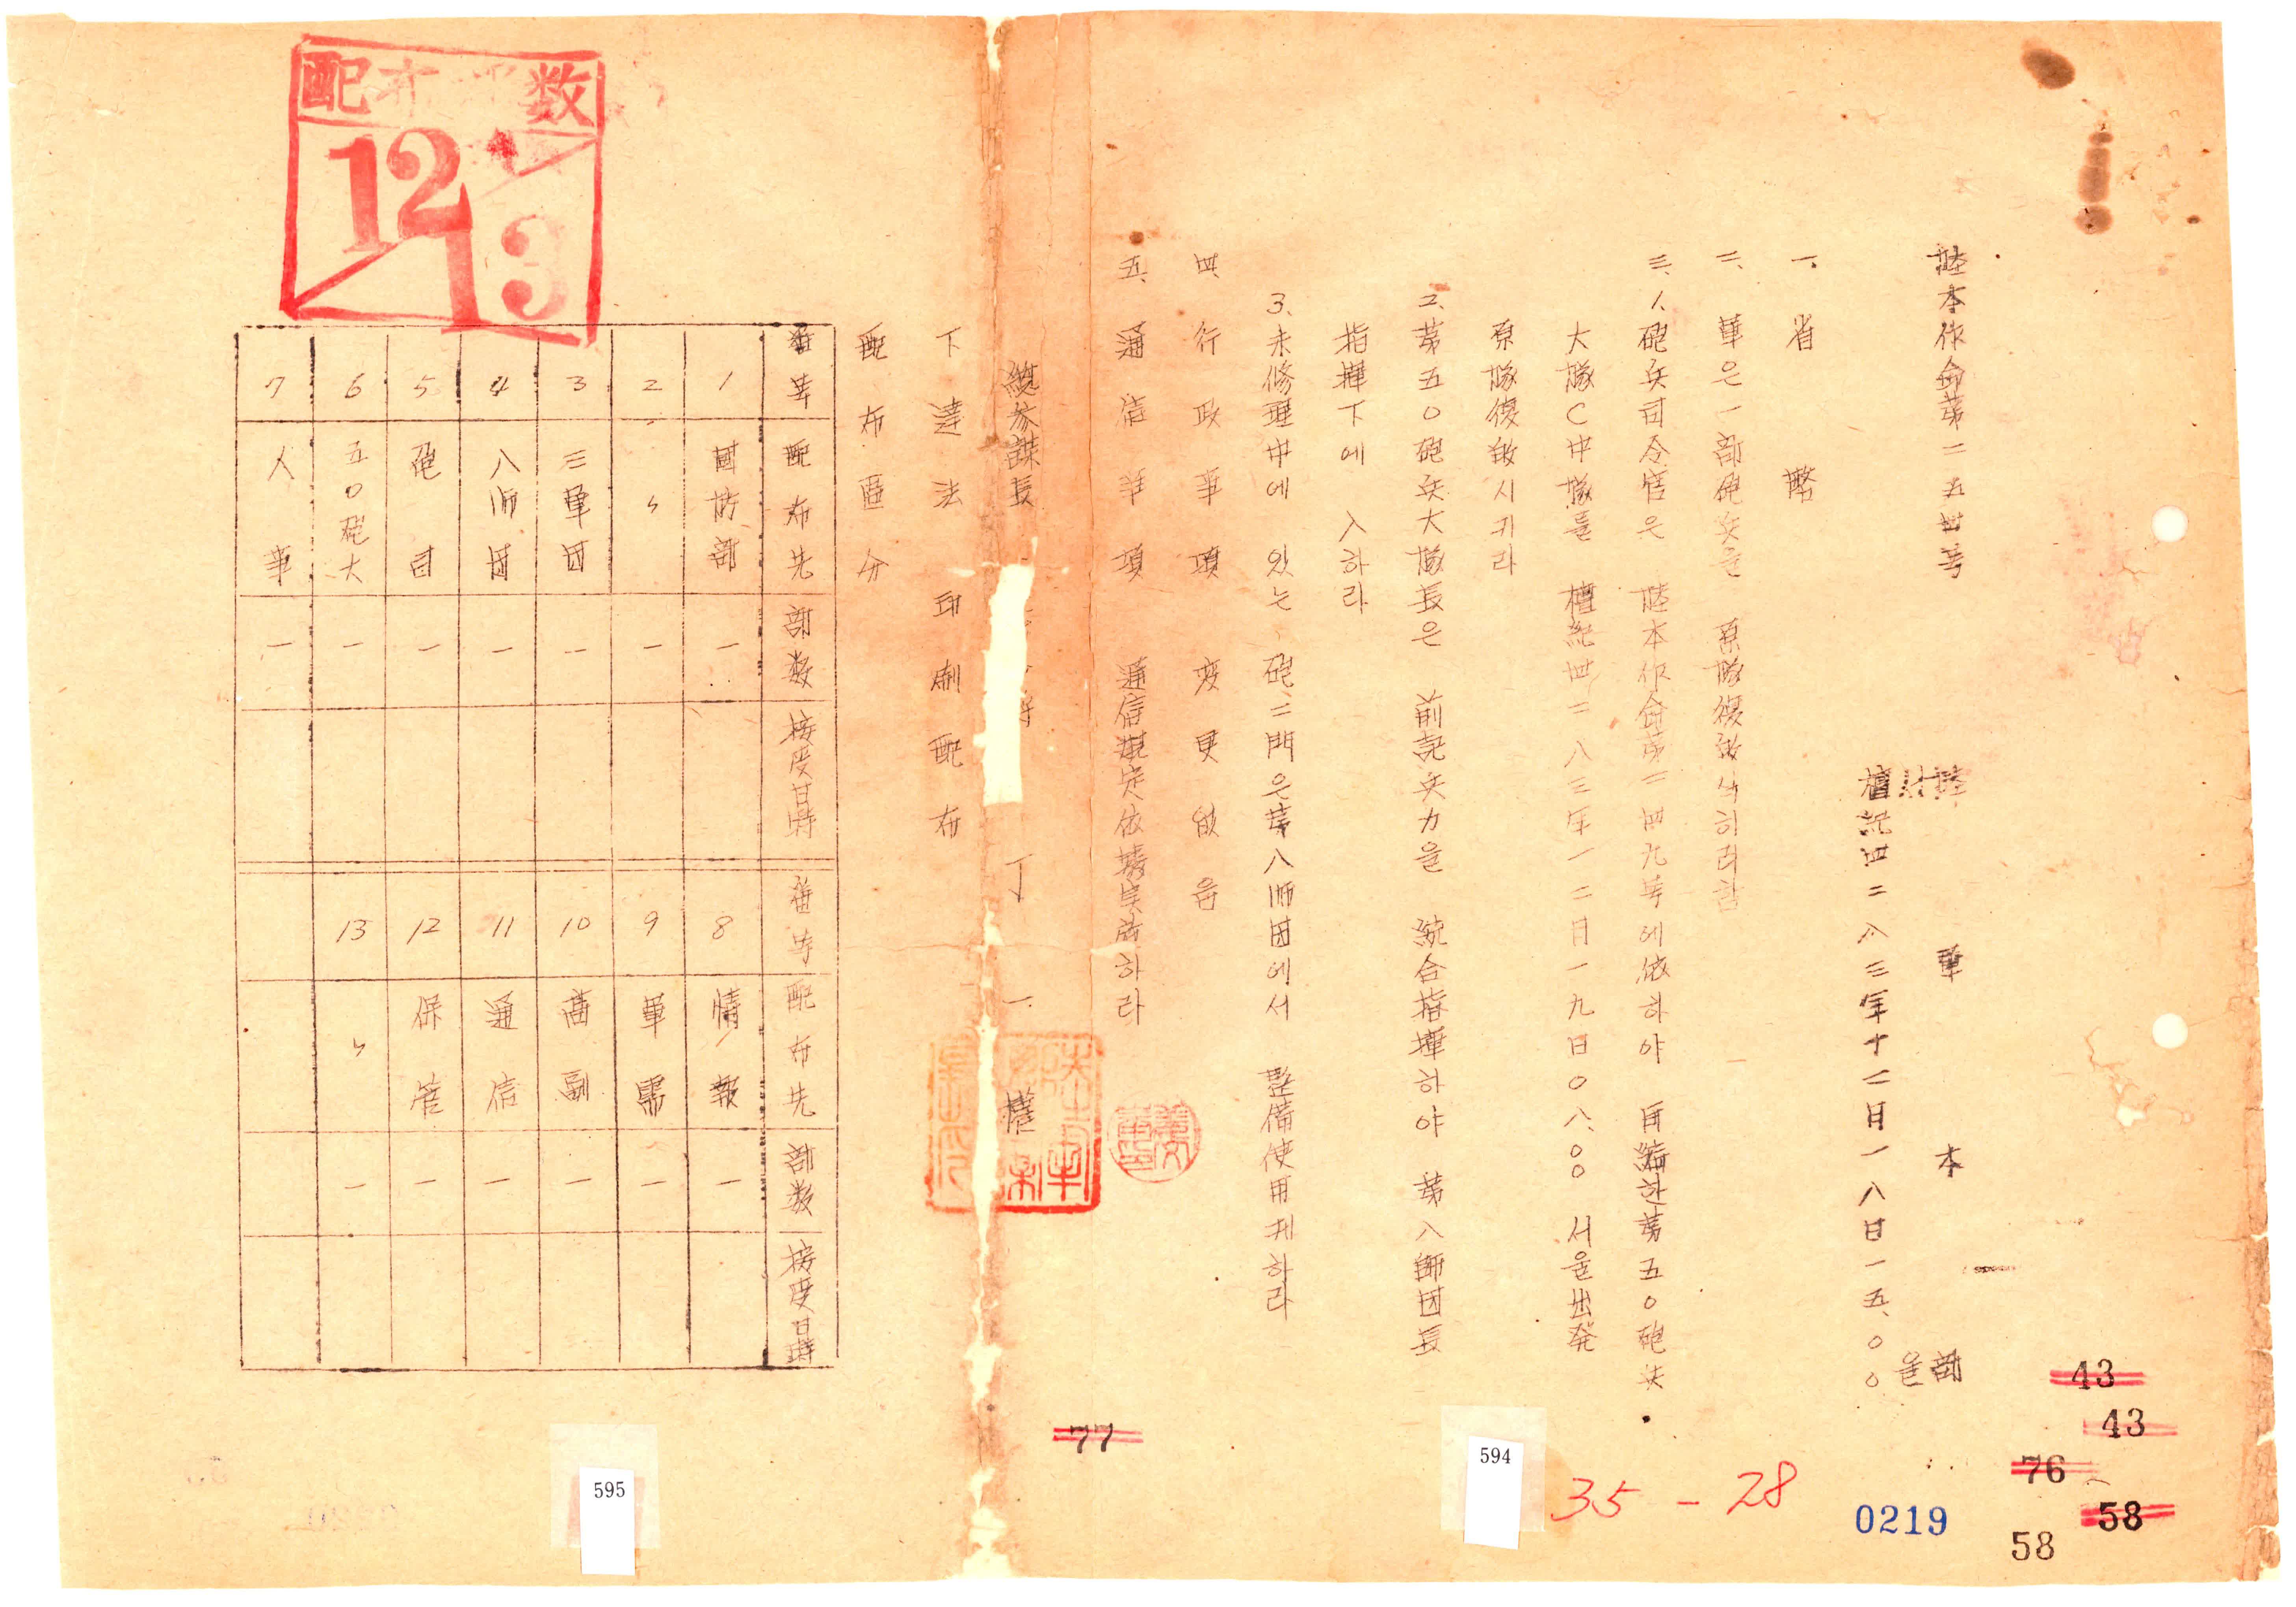 陸本作命第二五四号
陸軍本部
서울
檀紀四二八三年十二月一八日一五、〇〇
一、省略
二、軍은 一部砲兵을 原隊復敀식히려함
三、1、砲兵司令官은 陸本作命第二四九号에依하야 再編한第五〇砲兵
大隊C中隊를 檀紀四二八三年一二月一九日〇八、〇〇 서울出発
原隊復敀시키라
2、第五〇砲兵大隊長은 前記兵力을 統合指揮하야 第八師団長
指揮下에 入하라
3、未修理中에 있는 砲二門은第八師団에서 整備使用케하라
四、行政事項 変更없음
五、通信事項 通信規定依據実施하라
總参謀長
丁一權
下達法 印刷配布
配布區分
番号 配布先 部数 接受日時
1 國防部 一
2 〃 一
3 三軍団 一
4 八師団 一
5 砲司 一
6 五〇砲大 一
7 人事 一
番号 配布先 部数 接受日時
8 情報 一
9 軍需 一
10 高副 一
11 通信 一
12 保管 一
13 〃 一
配布 数
12
13
43
43
76
58
58
0219
35-28
594
77
595